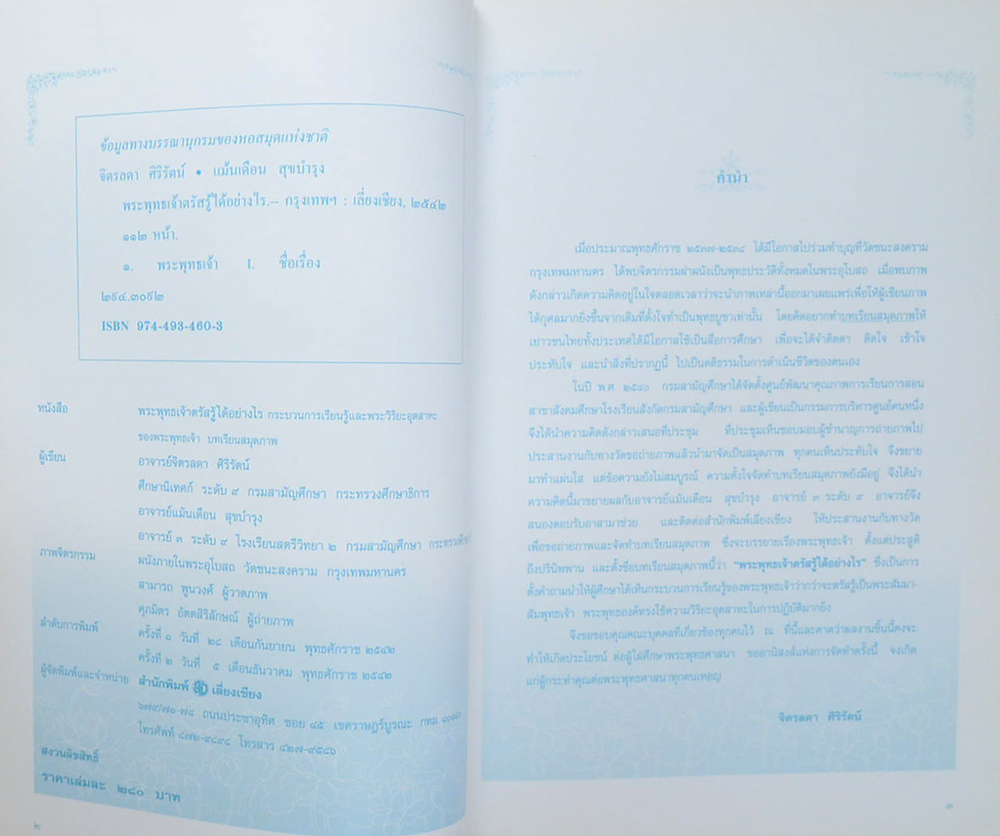 ข้อมูลทางบรรณานุกรมของหอสมุดแห่งชาติ
จิตรลดา ศิริรัตน์ • แม้นเดือน สุขบำรุง
พระพุทธเจ้าตรัสรู้ได้อย่างไร.-- กรุงเทพฯ : เลี่ยงเชียง, ๒๕๔๒
๑๑๒ หน้า.
๑. พระพุทธเจ้า I. ชื่อเรื่อง
๒๙๔.๓๐๙๒
ISBN 974-493-460-3
หนังสือ พระพุทธเจ้าตรัสรู้ได้อย่างไร กระบวนการเรียนรู้และพระวิริยะอุตสาหะ
ของพระพุทธเจ้า บทเรียนสมุดภาพ
ผู้เขียน อาจารย์จิตรลดา ศิริรัตน์
ศึกษานิเทศก์ ระดับ ๙ กรมสามัญศึกษา กระทรวงศึกษาธิการ
อาจารย์แม้นเดือน สุขบำรุง
อาจารย์ ๓ ระดับ ๙ โรงเรียนสตรีวิทยา ๒ กรมสามัญศึกษา
ภาพจิตรกรรม ผนังภายในพระอุโบสถ วัดชนะสงคราม กรุงเทพมหานคร
สามารถ พูนวงศ์ ผู้วาดภาพ
ศุภมิตร อัตตสิริลักษณ์ ผู้ถ่ายภาพ
ลำดับการพิมพ์ ครั้งที่ ๑ วันที่ ๒๘ เดือนกันยายน พุทธศักราช ๒๕๔๒
ครั้งที่ ๒ วันที่ ๕ เดือนธันวาคม พุทธศักราช ๒๕๔๒
ผู้จัดพิมพ์และจำหน่าย สำนักพิมพ์ เลี่ยงเชียง
๖๗๙/๗๑-๗๔ ถนนประชาอุทิศ ซอย ๔๕ เขตราษฎร์บูรณะ กทม
โทรศัพท์ ๘๗๒-๙๘๙๘ โทรสาร ๔๒๗-๙๕๔๖
สงวนลิขสิทธิ์
ราคาเล่มละ ๒๘๐ บาท
๒
คำนำ
เมื่อประมาณพุทธศักราช ๒๕๓๗-๒๕๓๘ ได้มีโอกาสไปร่วมทำบุญที่วัดชนะสงคราม
กรุงเทพมหานคร ได้พบจิตรกรรมฝาผนังเป็นพุทธประวัติทั้งหมดในพระอุโบสถ เมื่อพบภาพ
ดังกล่าวเกิดความคิดอยู่ในใจตลอดเวลาว่าจะนำภาพเหล่านี้ออกมาเผยแพร่เพื่อให้ผู้เขียนภาพ
ได้กุศลมากยิ่งขึ้นจากเดิมที่ตั้งใจทำเป็นพุทธบูชาเท่านั้น โดยคิดอยากทำบทเรียนสมุดภาพให้
เยาวชนไทยทั้งประเทศได้มีโอกาสใช้เป็นสื่อการศึกษา เพื่อจะได้จำติดตา ติดใจ เข้าใจ
ประทับใจ และนำสิ่งที่ปรากฏนี้ ไปเป็นคติธรรมในการดำเนินชีวิตของตนเอง
ในปี พ.ศ. ๒๕๔๐ กรมสามัญศึกษาได้จัดตั้งศูนย์พัฒนาคุณภาพการเรียนการสอน
สาขาสังคมศึกษาโรงเรียนสังกัดกรมสามัญศึกษา และผู้เขียนเป็นกรรมการบริหารศูนย์คนหนึ่ง
จึงได้นำความคิดดังกล่าวเสนอที่ประชุม ที่ประชุมเห็นชอบมอบผู้ชำนาญการถ่ายภาพไป
ประสานงานกับทางวัดขอถ่ายภาพแล้วนำมาจัดเป็นสมุดภาพ ทุกคนเห็นประทับใจ จึงขยาย
มาทำแผ่นใส แต่ข้อความยังไม่สมบูรณ์ ความตั้งใจจัดทำบทเรียนสมุดภาพยังมีอยู่ จึงได้นำ
ความคิดนี้มาขยายผลกับอาจารย์แม้นเดือน สุขบำรุง อาจารย์ ๓ ระดับ ๙ อาจารย์จึง
สนองตอบรับอาสามาช่วย และติดต่อสำนักพิมพ์เลี่ยงเชียง ให้ประสานงานกับทางวัด
เพื่อขอถ่ายภาพและจัดทำบทเรียนสมุดภาพ ซึ่งจะบรรยายเรื่องพระพุทธเจ้า ตั้งแต่ประสูติ
ถึงปรินิพพาน และตั้งชื่อบทเรียนสมุดภาพนี้ว่า "พระพุทธเจ้าตรัสรู้ได้อย่างไร" ซึ่งเป็นการ
ตั้งคำถามนำให้ผู้ศึกษาได้เห็นกระบวนการเรียนรู้ของพระพุทธเจ้าว่ากว่าจะตรัสรู้เป็นพระสัมมา-
สัมพุทธเจ้า พระพุทธองค์ทรงใช้ความวิริยะอุตสาหะในการปฏิบัติมากยิ่ง
จึงขอขอบคุณคณะบุคคลที่เกี่ยวข้องทุกคนไว้ ณ ที่นี้และคาดว่าผลงานชิ้นนี้คงจะ
ทำให้เกิดประโยชน์ ต่อผู้ใฝ่ศึกษาพระพุทธศาสนา ขออานิสงส์แห่งการจัดทำครั้งนี้ จงเกิด
แก่ผู้กระทำคุณต่อพระพุทธศาสนาทุกคนเทอญ
จิตรลดา ศิริรัตน์
๓